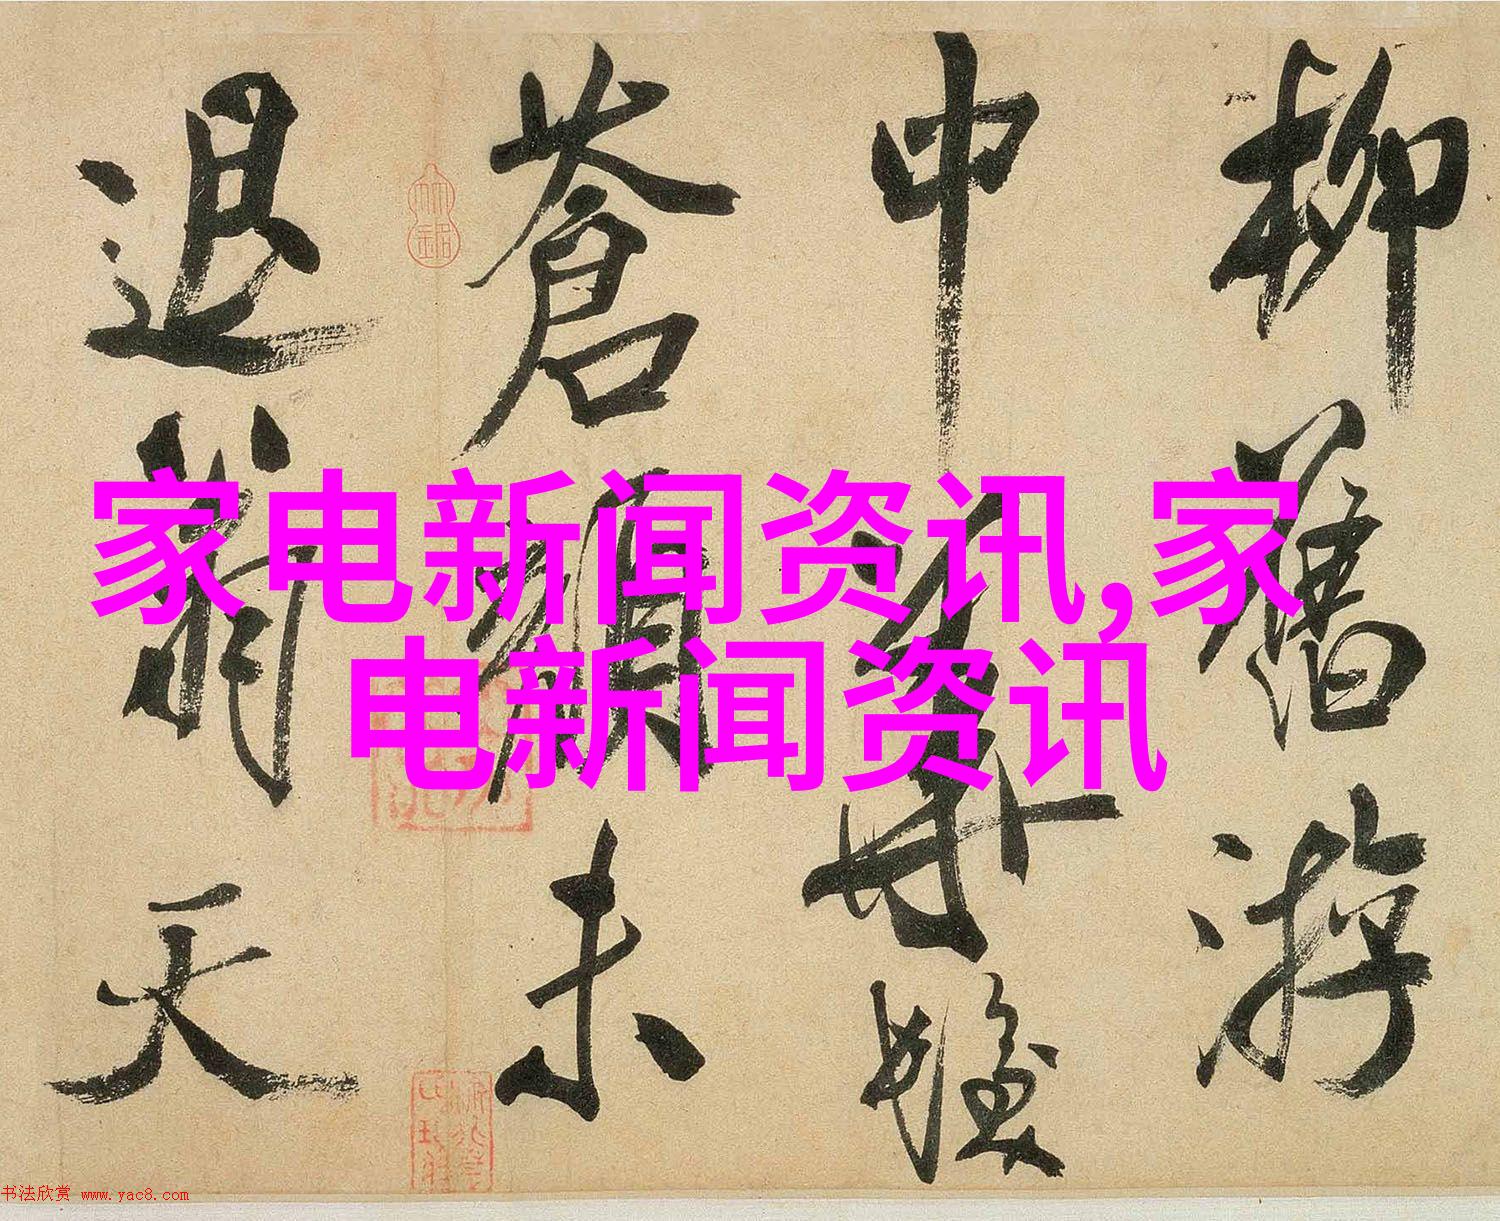 柳舊游
中
蒼顏未
退翁天
家电新闻资讯,家
电新闻资讯
书法欣赏 www.yac8.com